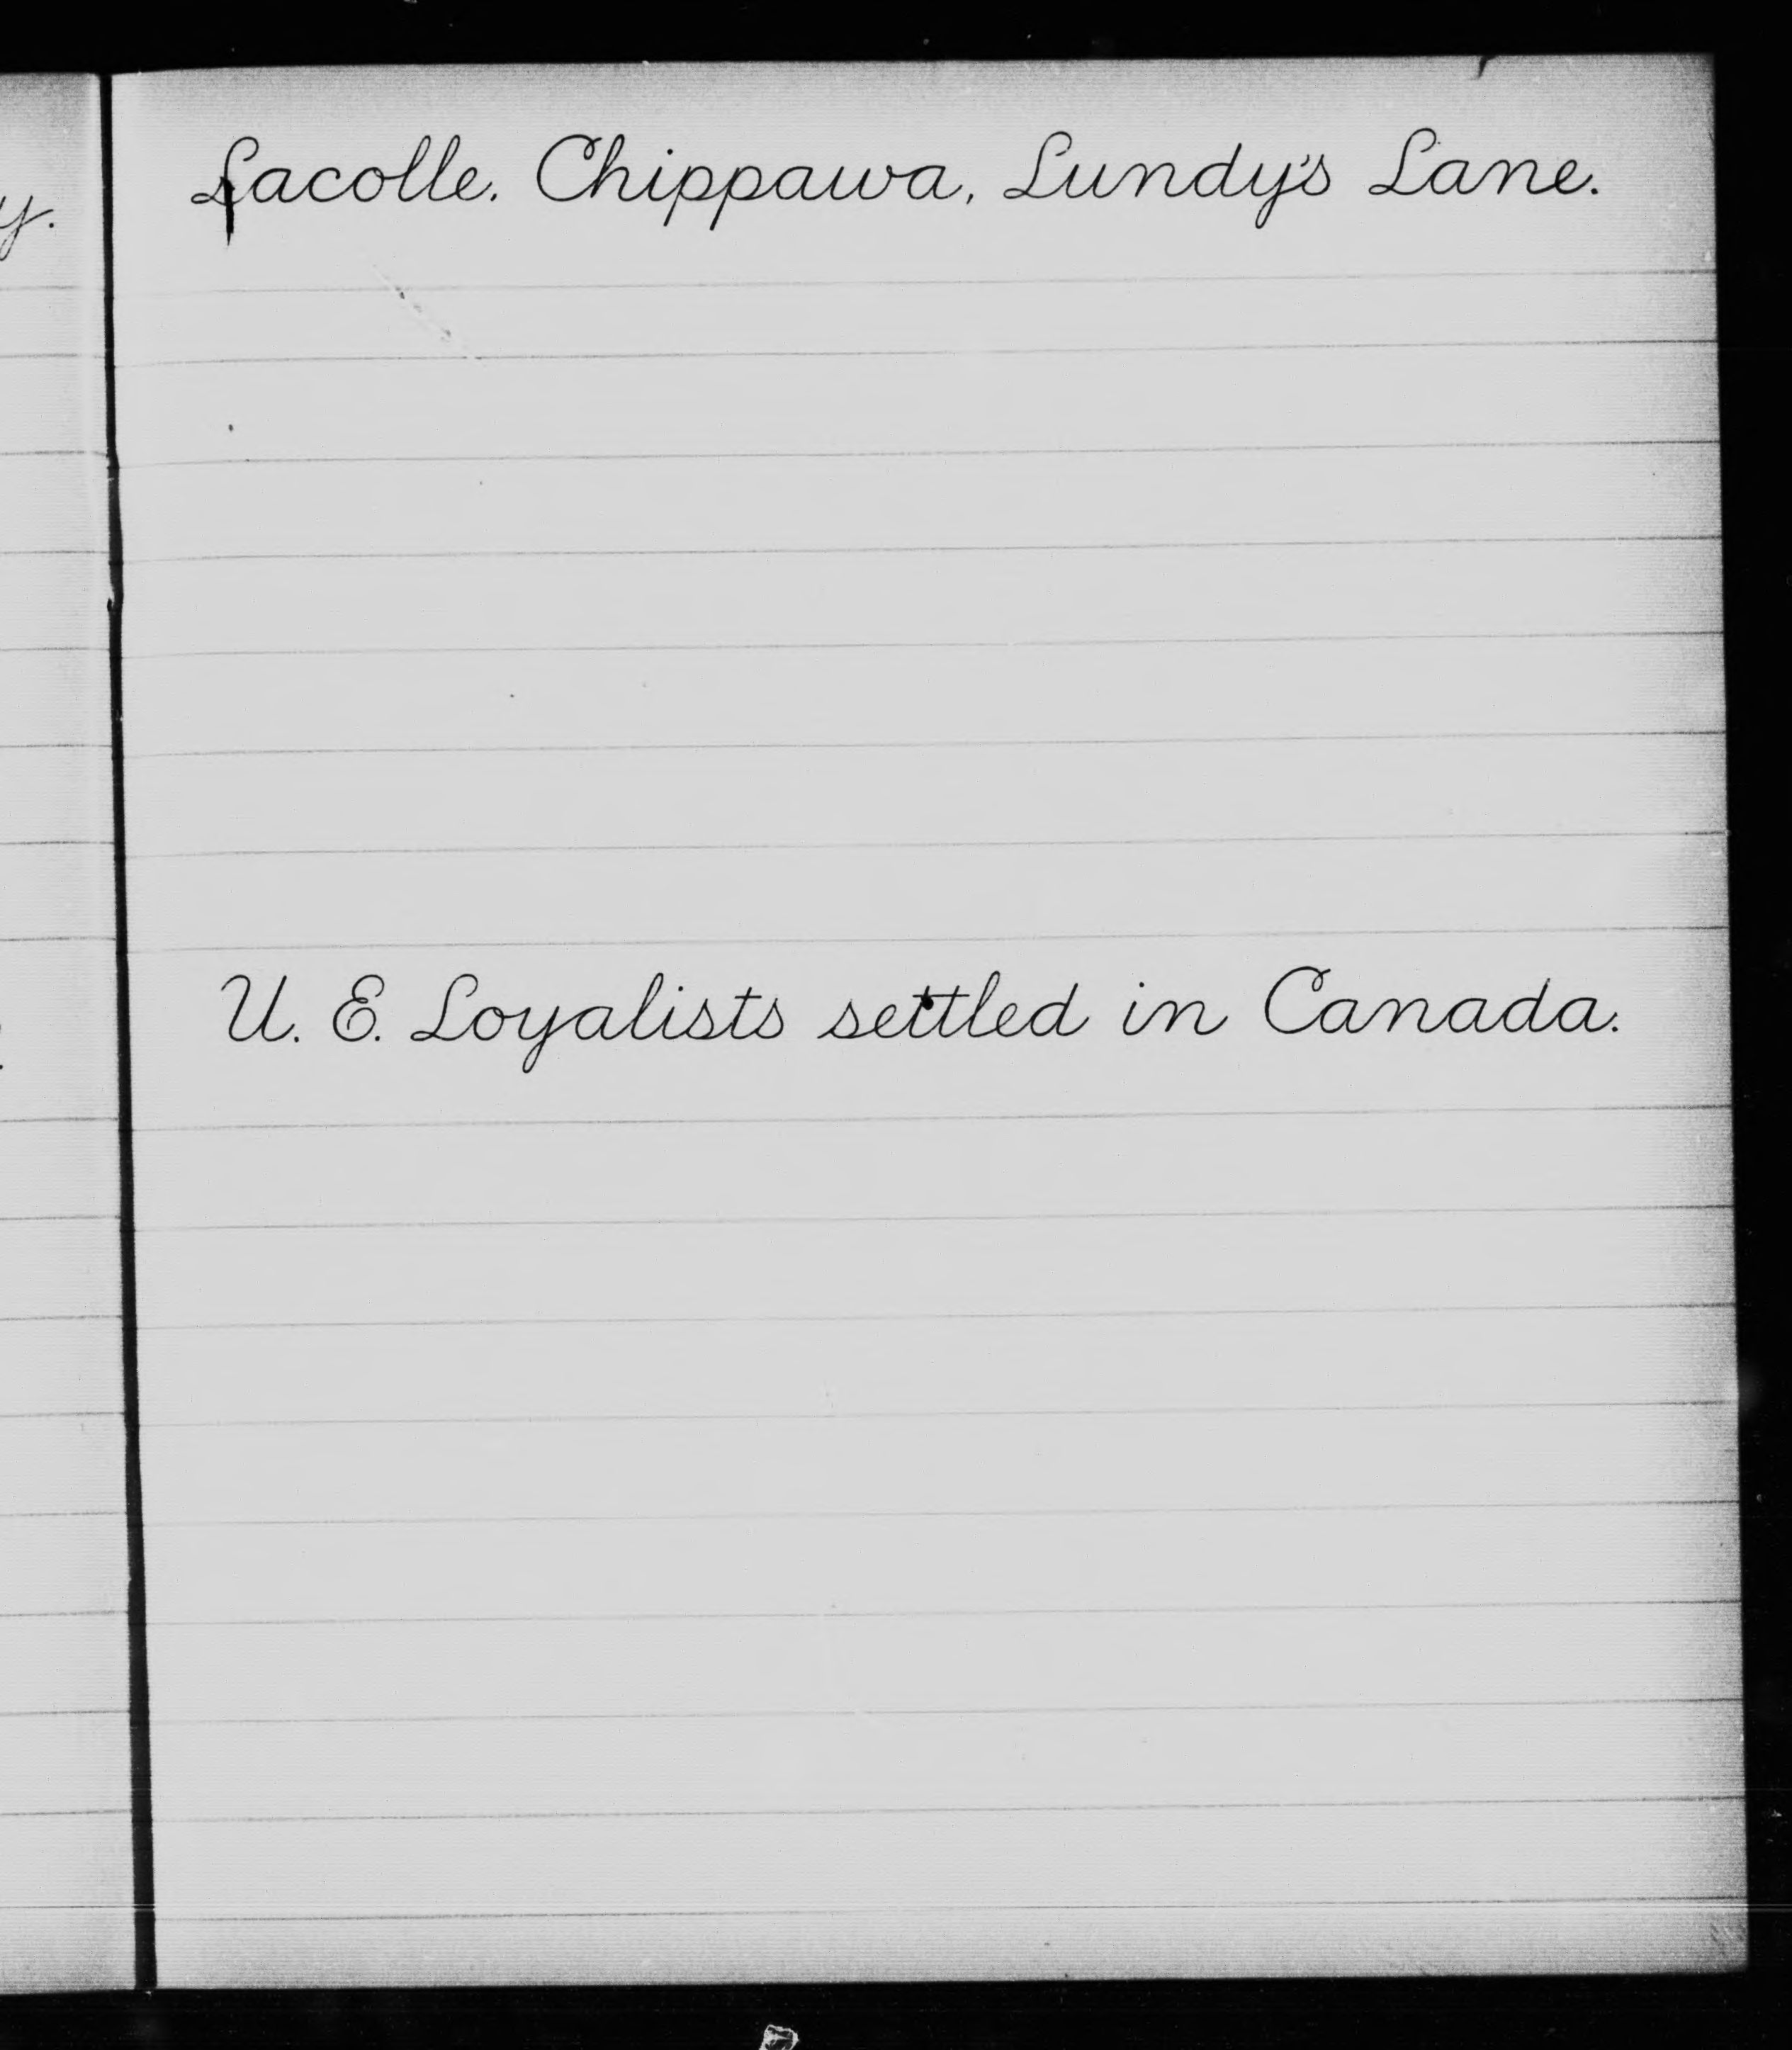 Lacolle, Chippawa, Lundy's Lane.
U. E. Loyalists settled in Canada.